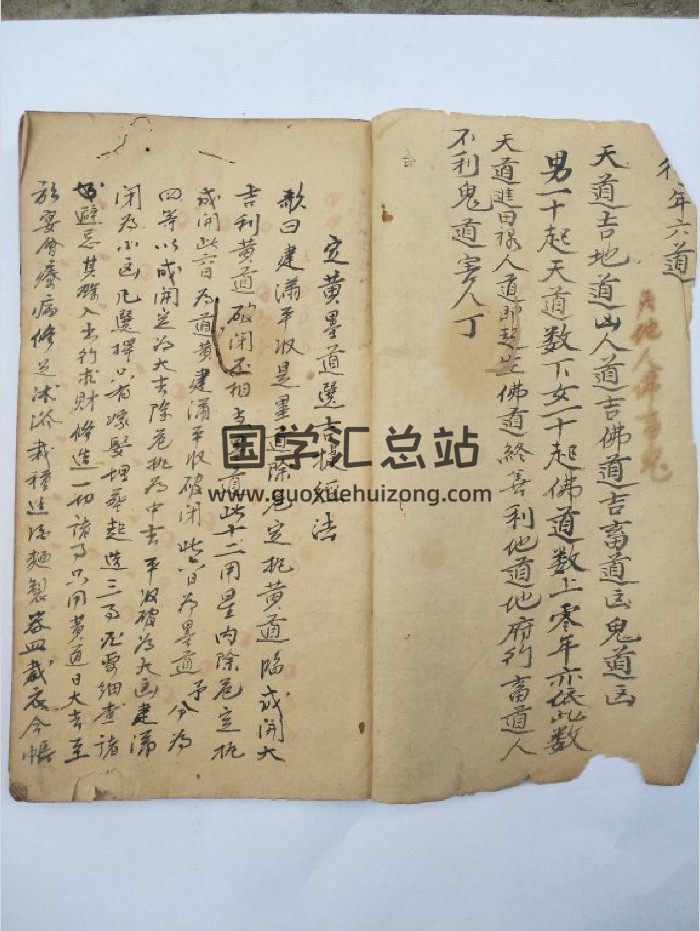 行年六道
天地人佛畜鬼
天道吉地道凶人道吉佛道吉畜道凶鬼道凶
男一十起天道数下女一十起佛道数上零年亦依此数
天道進田禄人道即起生佛道終善利他道地府行畜道人
不利鬼道害人丁
定黄黑道選吉捷徑法
歌曰建满平收是黑道除危定执黄道臨成開大
吉利黄道破闭不相当黑道此十二用星内除危定执
成開此六日为道黄建满平收破闭此六日为黑道予分為
四等以成開定為大吉除危执為中吉平收破為大凶建满
闭為小凶凡選擇只有嫁娶埋葬起造三事尤要细查諸
避忌其餘入出行求財修造一切諸事只用黄道日大吉至
於宴會療病修足沐浴栽種造酒麵製器皿裁衣合帳
国学汇总站
www.guoxuehuizong.com